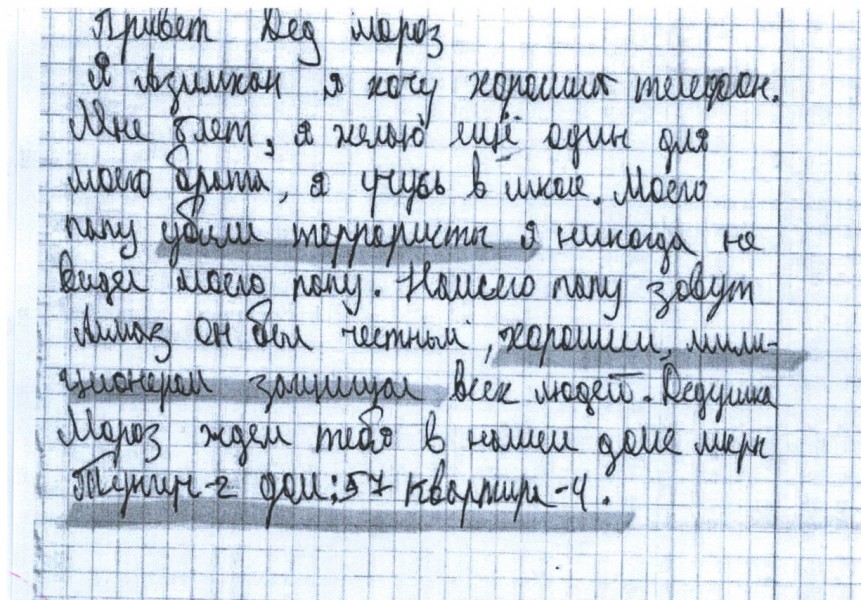 Привет Дед мороз
Я Азимжан я хочу хороший телефон.
Мне 8лет, я желаю ещё один для
моего брата, я учусь в школе. Моего
папу убили террористы я никогда не
видел моего папу. Нашего папу зовут
Алмаз он был честным, хорошим, мили-
ционером защищал всех людей. Дедушка
Мороз ждем тебя в нашем доме мкрн
Тунгуч-2 дом:57 квартира-4.